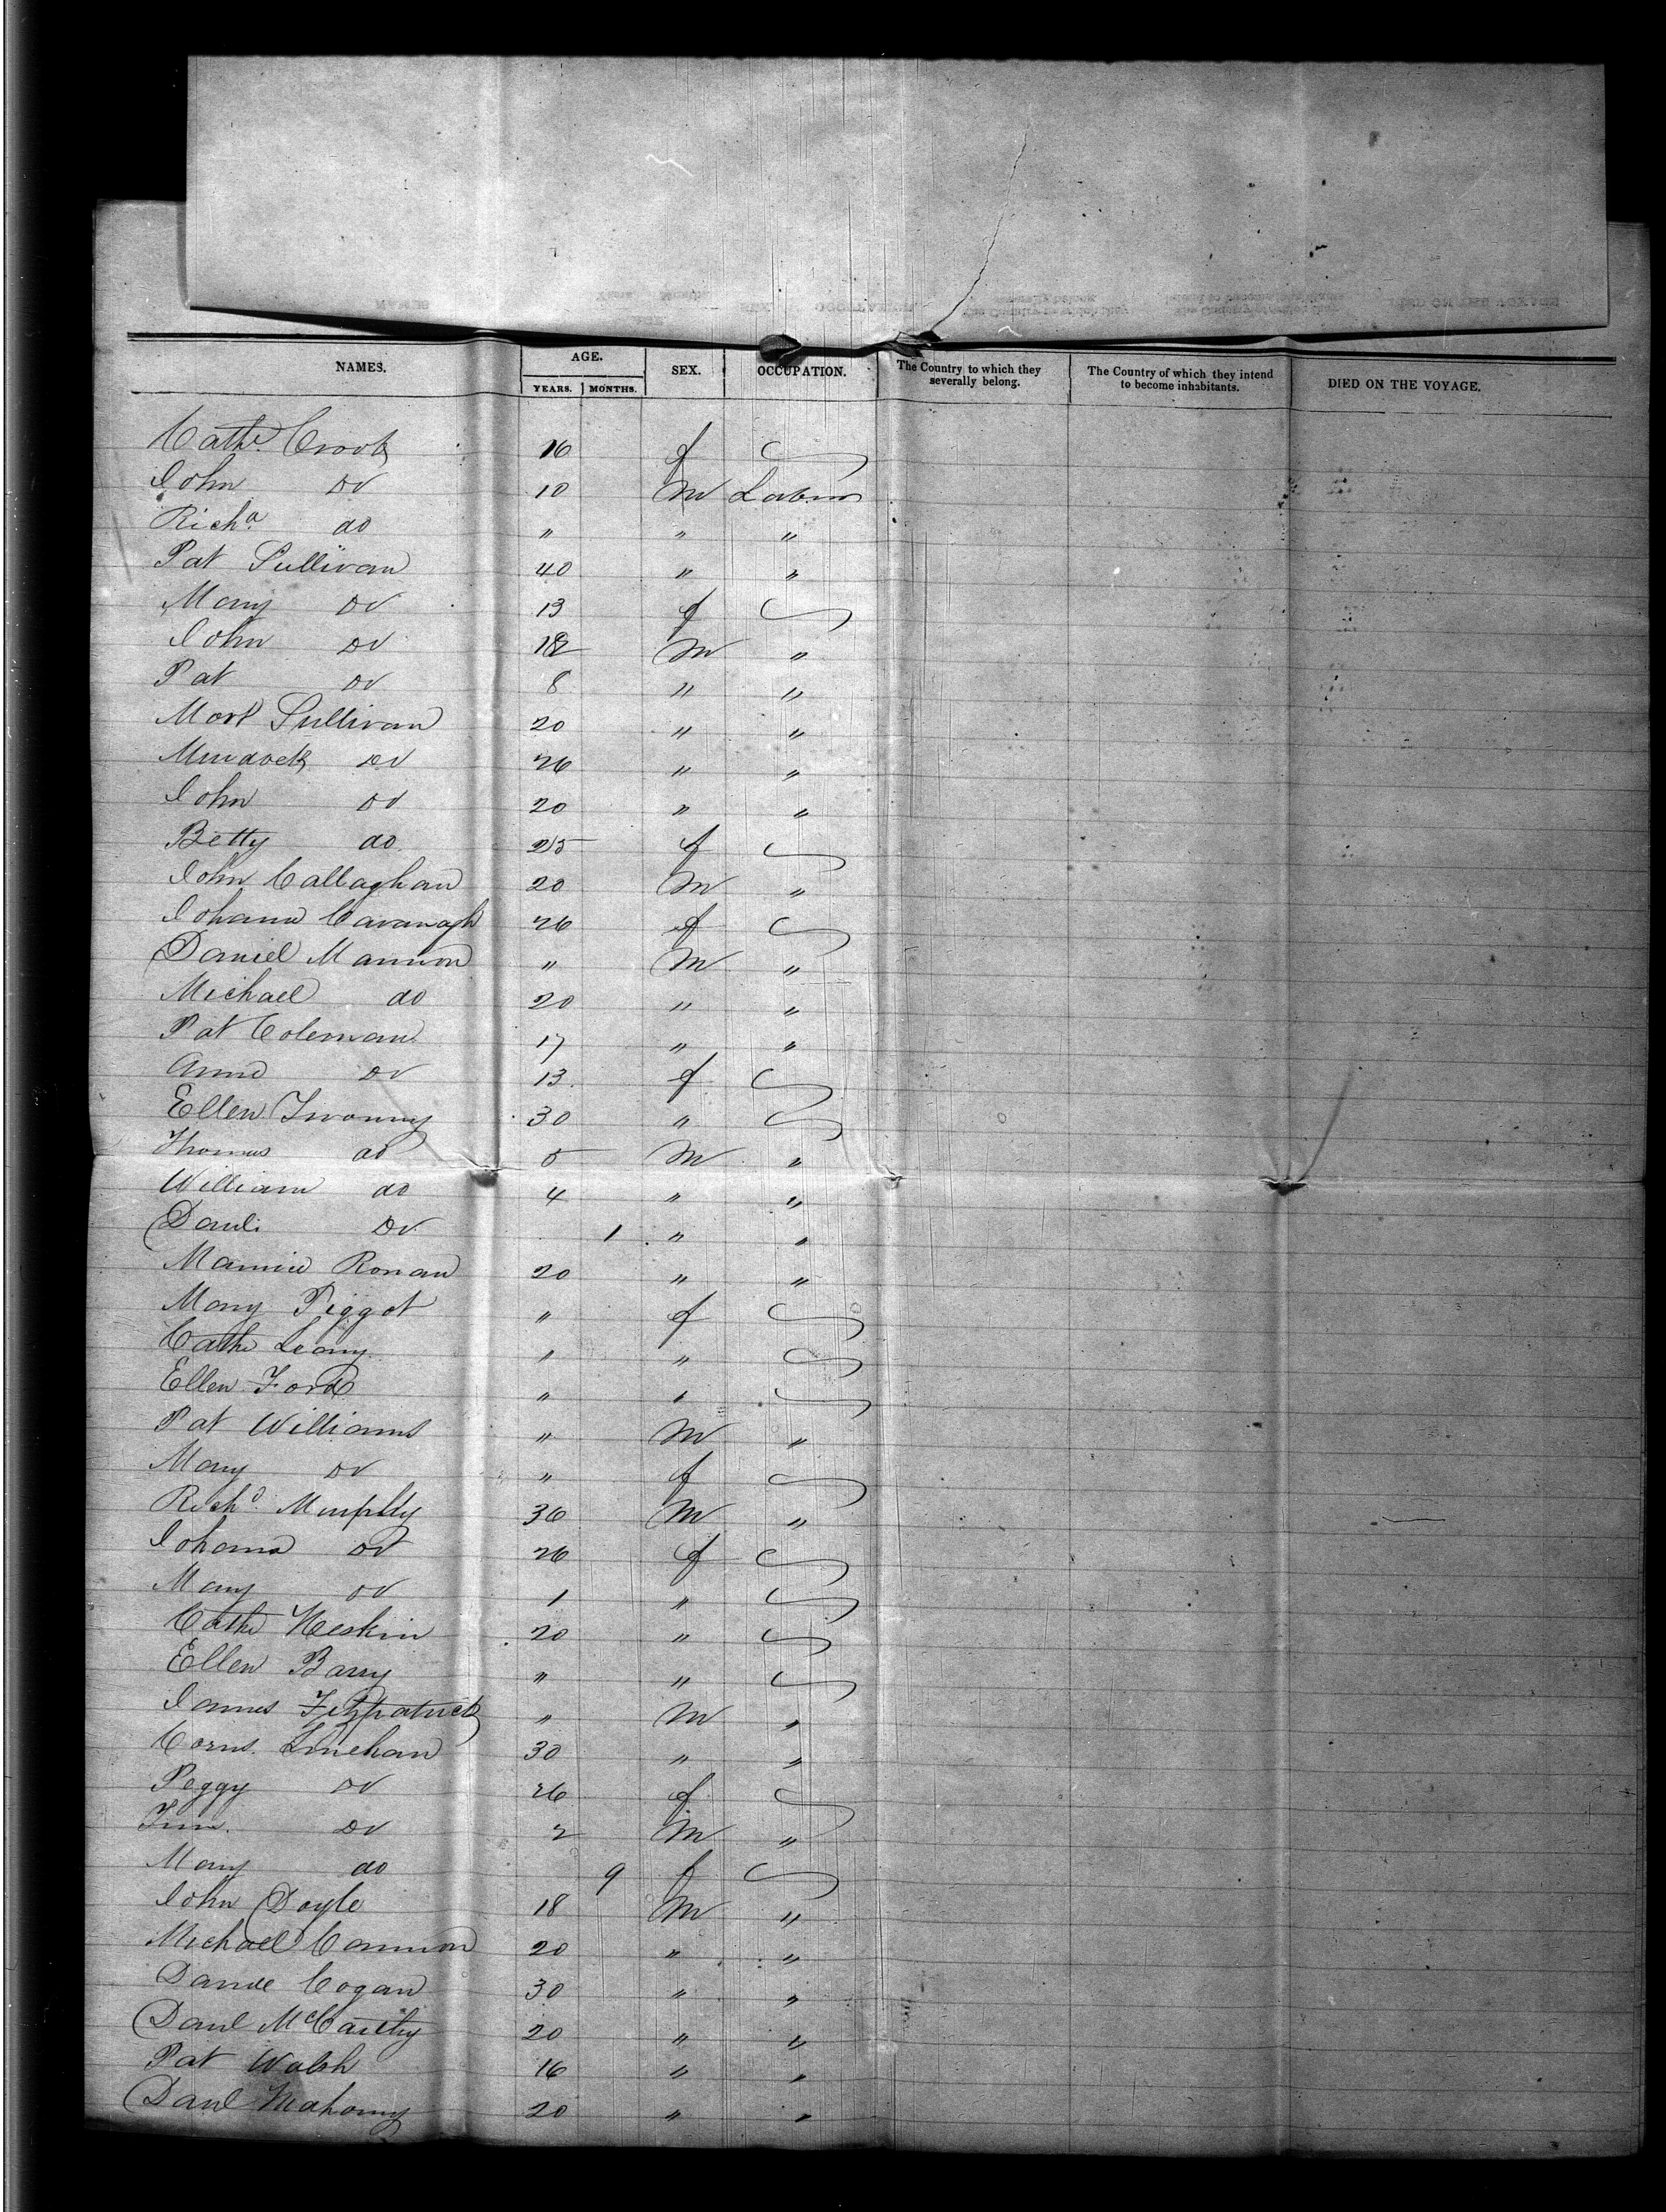 NAMES. AGE. SEX. OCCUPATION. The Country to which they severally belong. The Country of which they intend to become inhabitants. DIED ON THE VOYAGE.
YEARS. MONTHS.
Cathe. Crook 16 f
John Do 10 M Labour
Richd. do " " "
Pat Sullivan 40 " "
Mary Do 13 f
John Do 12 M "
Pat Do 8 " "
Mort Sullivan 20 " "
Murdock Do 26 " "
John Do 20 " "
Betty do 25 f
John Callaghan 20 M "
Johana Cavanagh 26 f
Daniel Mannion " M "
Michael do 20 " "
Pat Coleman 17 " "
Anne Do 13 f
Ellen 30 "
Thomas do 5 M "
William do 4 " "
Danl. Do 1 " "
Ronan 20 " "
Mary Piggot " f
Cathe Leary " "
Ellen Ford " "
Pat Williams " M "
Mary Do " f
Richd. Murphy 36 M "
Johana Do 26 f
Mary Do 1 "
Cathe Heskin 20 "
Ellen Barry " "
James Fitzpatrick " M "
Corns. Linehan 30 " "
Peggy Do 26 f
Tim. Do 2 M "
Mary do 9 f
John Doyle 18 M "
Michael Cannon 20 " "
Cogan 30 " "
Danl McCarthy 20 " "
Pat Walsh 16 " "
Danl Mahony 20 " "